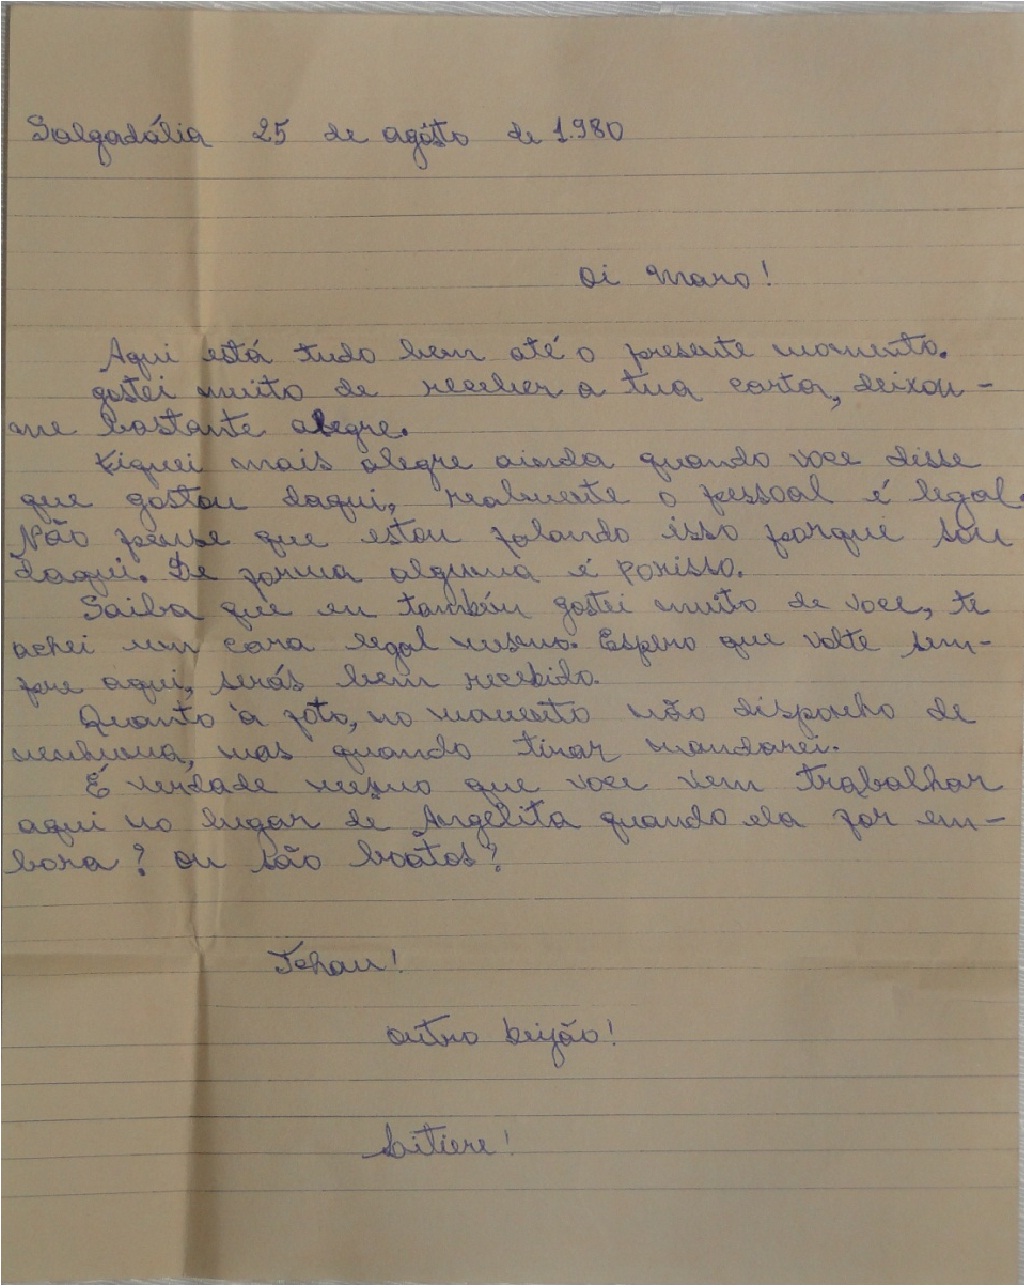 Salgadália 25 de agôsto de 1.980
Oi Maro!
Aqui está tudo bem até o presente momento.
gostei muito de receber a tua carta, deixou-
me bastante alegre.
Fiquei mais alegre ainda quando voce disse
que gostou daqui, realmente o pessoal é legal.
Não pense que estou falando isso porque sou
daqui. De forma alguma é porisso.
Saiba que eu também gostei muito de voce, te
achei um cara legal mesmo. Espero que volte sem-
pre aqui, serás bem recebido.
Quanto à foto, no momento não disponho de
nenhuma, mas quando tirar mandarei.
É verdade mesmo que voce vem trabalhar
aqui no lugar de Angélita quando ela for em-
bora? ou são boatos?
Tchau!
outro beijão!